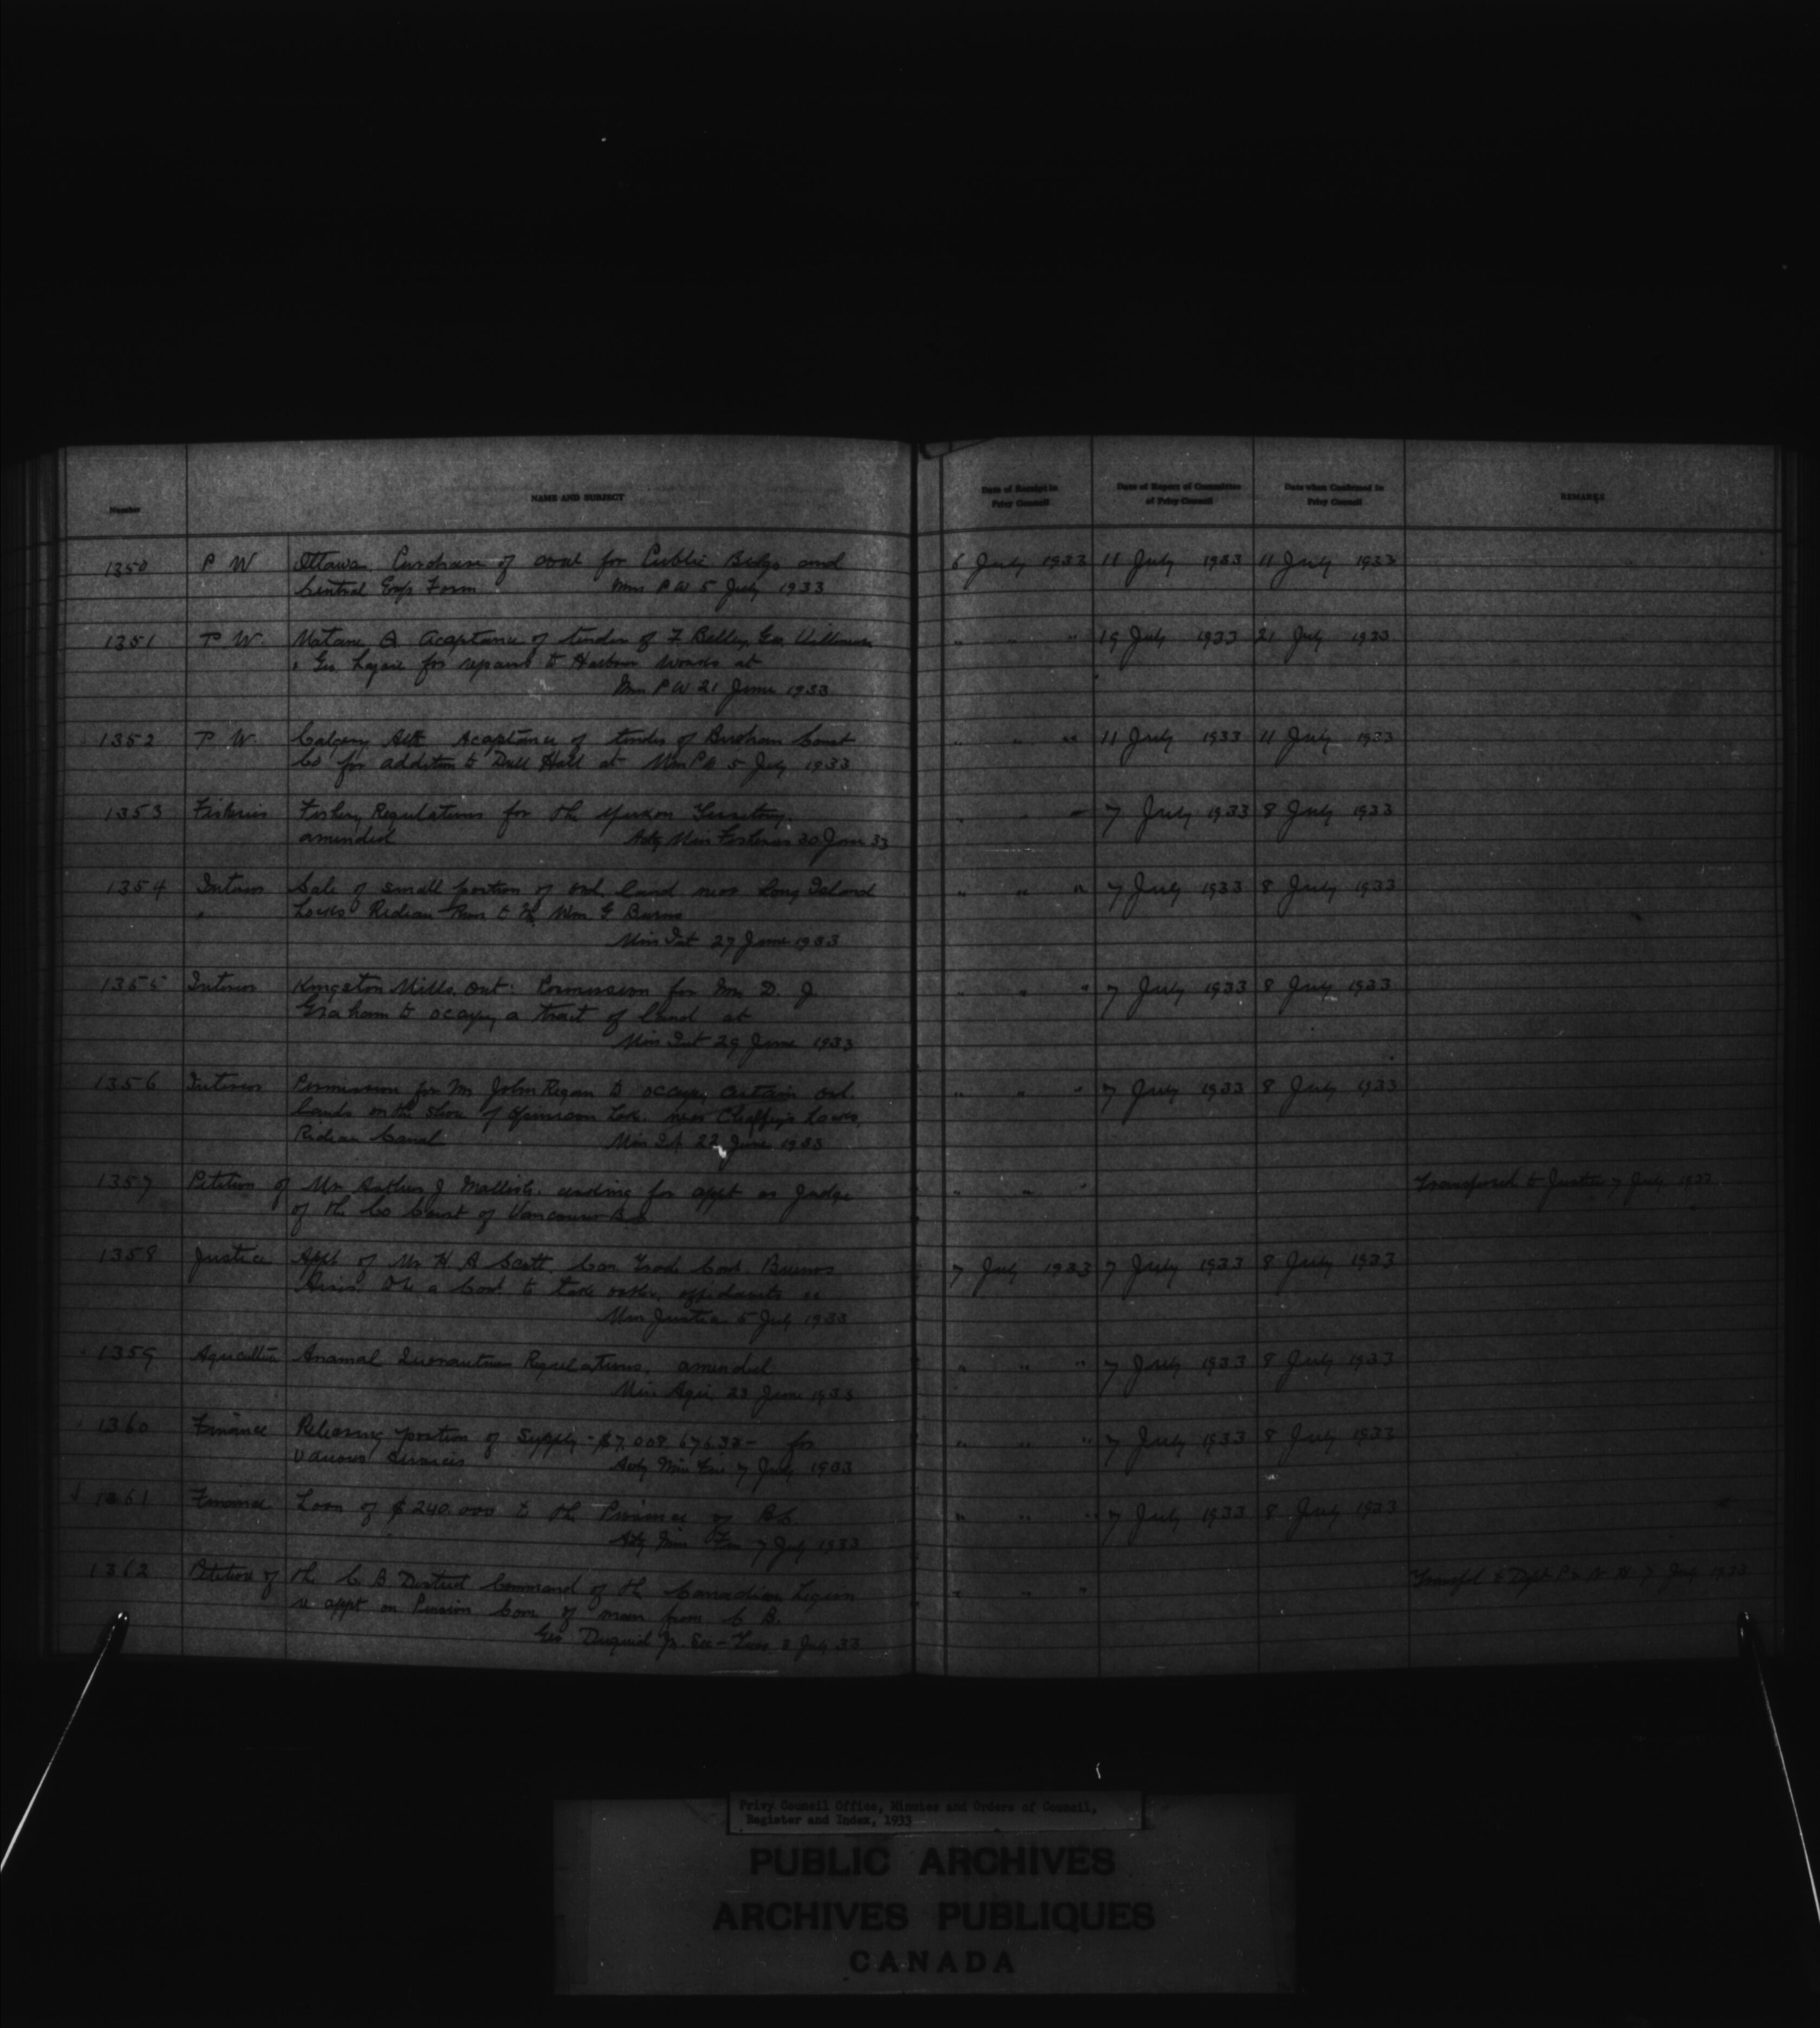 Number
NAME AND SUBJECT
Date of Receipt in Privy Council
Date of Report of Committee of Privy Council
Date when Confirmed in Privy Council
REMARKS
1350 P W Ottawa Purchase of coal for Public Bldgs and 6 July 1933 11 July 1933 11 July 1933
Central Exp Farm Min P W 5 July 1933
1351 P W Matane Q Acceptance of tender of F Belley, Geo " " " 19 July 1933 21 July 1933
Geo for repairs to Harbour Works at
Min P W 21 June 1933
1352 P W Calgary Alta Acceptance of tender of Const " " " 11 July 1933 11 July 1933
Co for addition to Drill Hall at Min P W 5 July 1933
1353 Fisheries Fishery Regulations for the Yukon Territory " " " 7 July 1933 8 July 1933
amended Actg Min Fisheries 30 June 33
1354 Interior Sale of small portion of ord. land near Long Island " " " 7 July 1933 8 July 1933
" Locks Rideau River to Wm G Burns
Min Int 27 June 1933
1355 Interior Kingston Mills Ont: Permission for Mr D. J. " " " 7 July 1933 8 July 1933
Graham to occupy a tract of land at
Min Int 29 June 1933
1356 Interior Permission for Mr John Regan to occupy certain ord. " " " 7 July 1933 8 July 1933
lands on the shore of Opinicon Lake near Chaffey's Locks,
Rideau Canal Min Int 22 June 1933
1357 Petition of Mr Arthur J for appt as Judge " " " Transferred to Justice 7 July 1933
of the Co Court of Vancouver B.C.
1358 Justice Appt of Mr H A Scott Can Trade Com. Buenos 7 July 1933 7 July 1933 8 July 1933
Aires to be a Com to take oaths, affidavits &c
Min Justice 5 July 1933
1359 Agriculture Anamal Quarantine Regulations, amended " " " 7 July 1933 8 July 1933
Min Agri 23 June 1933
1360 Finance Releasing portion of Supply - $7,008,676.33 - for " " " 7 July 1933 8 July 1933
various services Actg Min Fin 7 July 1933
1361 Finance Loan of $240.000 to the Province of B.C. " " " 7 July 1933 8 July 1933
Actg Min Fin 7 July 1933
1362 Petition of the C B District Command of the Canadian Legion " " " Transfd to Dept P & N H 7 July 1933
re appt on Pension Com of man from C B.
Geo Duguid Jr. Sec-Treas 3 July 33
Privy Council Office, Minutes and Orders of Council,
Register and Index, 1933
PUBLIC ARCHIVES
ARCHIVES PUBLIQUES
CANADA